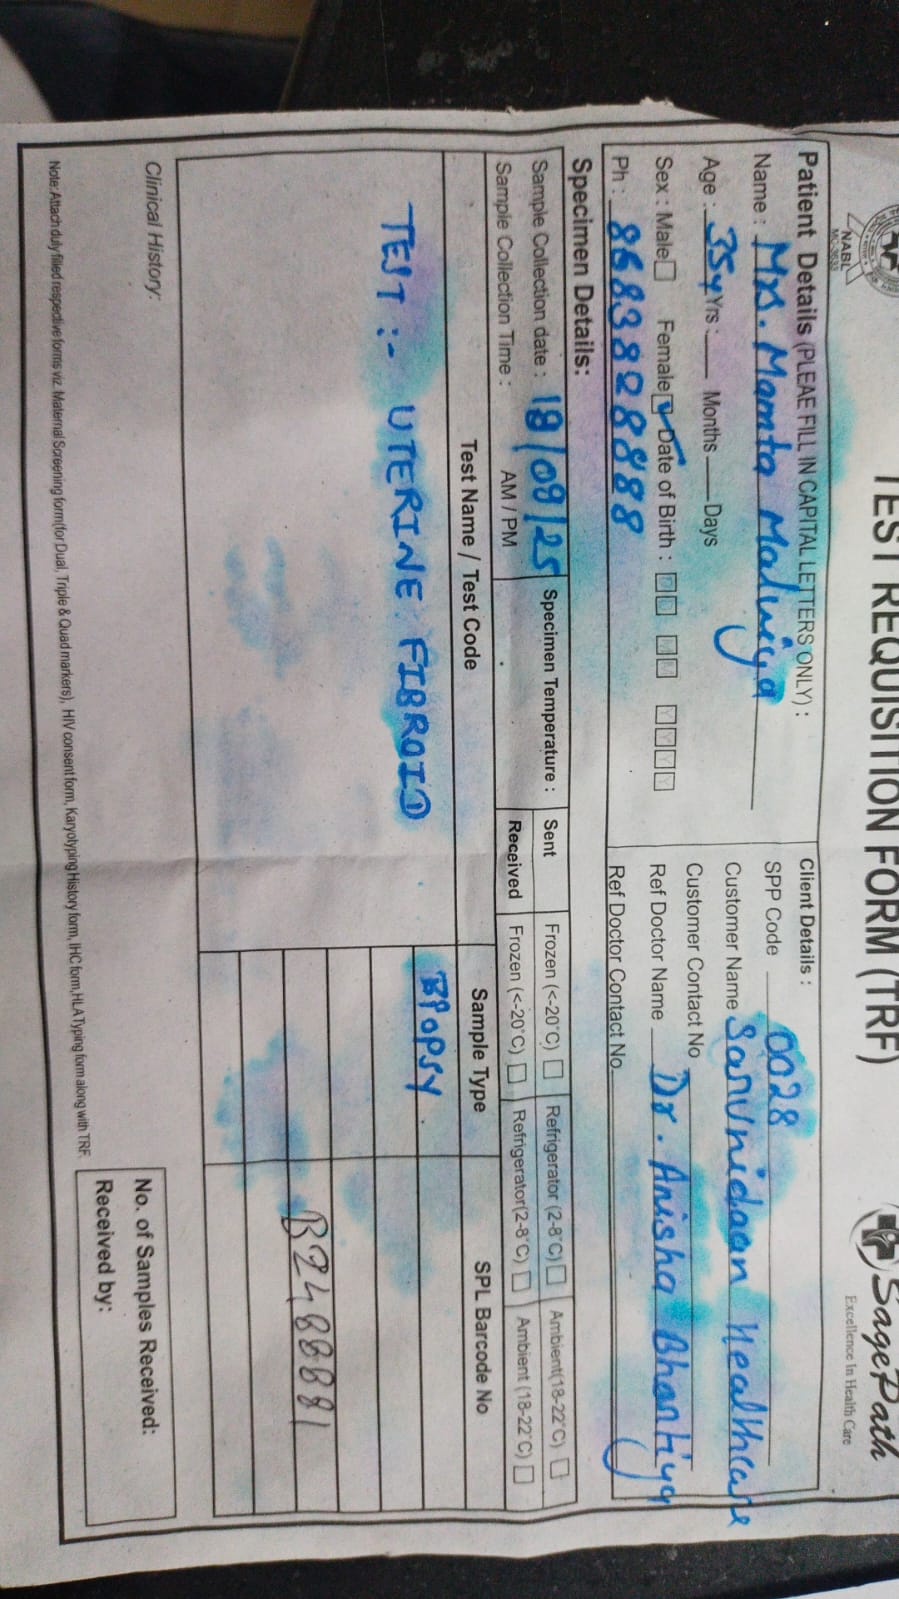 NABL
MC-3633
TEST REQUISITION FORM (TRF)
SagePath
Excellence In Health Care
Patient Details (PLEAE FILL IN CAPITAL LETTERS ONLY) :
Name : Mrs. Mamta
Age : 35y Yrs : Months Days
Sex : Male Female Date of Birth : D D M M Y Y Y Y
Ph : 8683828888
Client Details :
SPP Code 0028
Customer Name Sarvnidaan Healthcare
Customer Contact No
Ref Doctor Name Dr. Anisha
Ref Doctor Contact No
Specimen Details:
Sample Collection date : 18/09/25
Sample Collection Time : AM / PM
Specimen Temperature :
Sent Frozen (<-20°C) Refrigerator (2-8°C) Ambient(18-22°C)
Received Frozen (<-20°C) Refrigerator(2-8°C) Ambient (18-22°C)
Test Name / Test Code Sample Type SPL Barcode No
TEST :- UTERINE FIBROID BIOPSY.
B2488881
Clinical History:
No. of Samples Received:
Received by:
Note: Attach duly filled respective forms viz. Maternal Screening form(for Dual, Triple & Quad markers), HIV consent form, Karyotyping History form, IHC form, HLA Typing form along with TRF